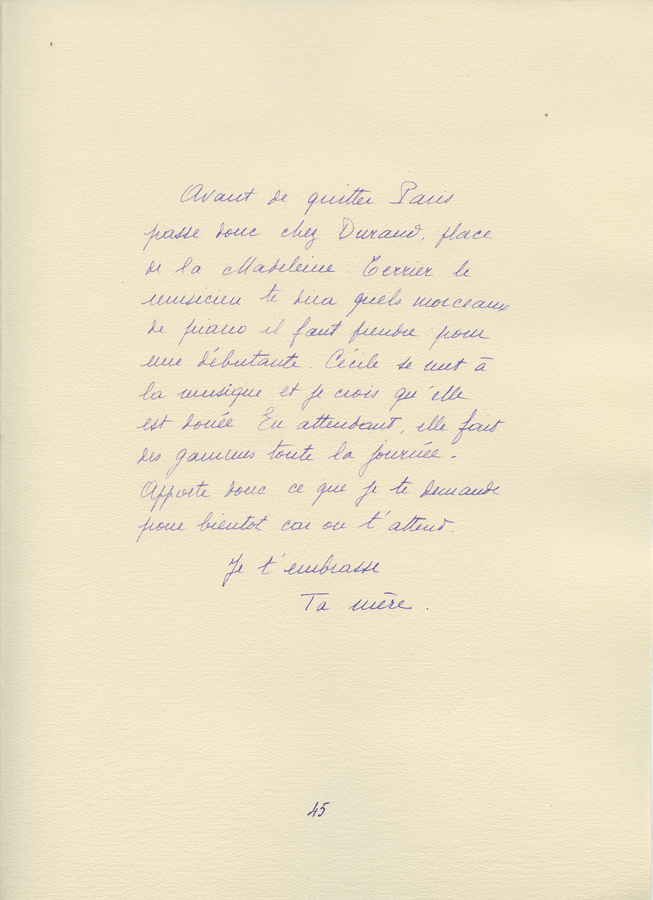 Avant de quitter Paris
passe donc chez Durand, place
de la Madeleine. Terrier le
musicien te dira quels morceaux
de piano il faut prendre pour
une débutante. Cécile se met à
la musique et je crois qu'elle
est douée. En attendant, elle fait
des gammes toute la journée.
Apporte donc ce que je te demande
pour bientôt car on t'attend.
Je t'embrasse
Ta mère.
45